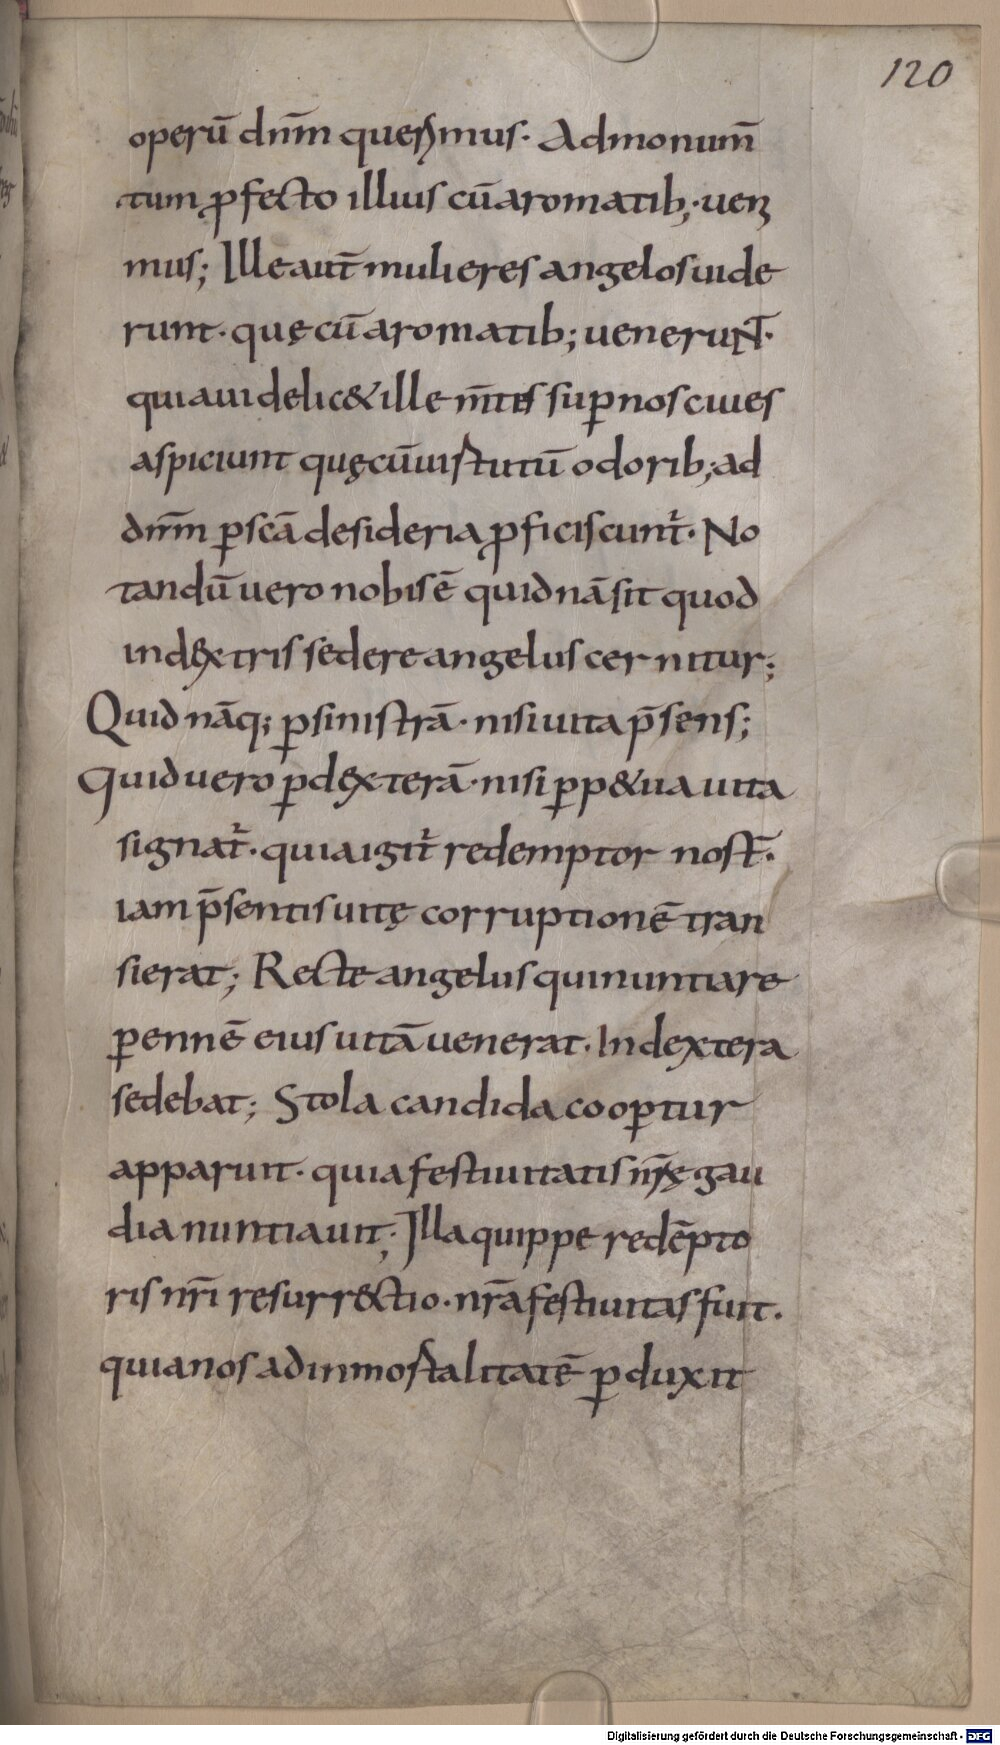 120
operū dnm̄ querimus· Ad monum̄
tum ꝓfecto illius cū aromatib;· ueni
mus; Ille aut̄ mulieres angelos uide
runt· quę cū aromatib; uenerunt·
quia uidelic& ille m̄tes supernos ciues
aspiciunt quę cū uirtutū odorib; ad
dnm̄ ꝑ scā desideria ꝓficiscunt᷑· No
tandū uero nobis ē quidnā sit quod
in dextris sedere angelus cernitur;
Quid nāq; ꝑ sinistrā· nisi uita p̄sens;
Quid uero ꝑ dexterā· nisi ꝑp&ua uita
signat᷑· quia igit᷑ redemptor nost̄·
iam p̄sentis uitę corruptionē tran
sierat; Recte angelus qui nuntiare
ꝑennē eius uitā uenerat· In dextera
sedebat; Stola candida cooꝑtur
apparuit· quia festiuitatis nr̄ę gau
dia nuntiauit; Illa quippe redēpto
ris nr̄i resurr&ctio· nr̄a festiuitas fuit·
quia nos ad inmortalitatē ꝑduxit
Digitalisierung gefördert durch die Deutsche Forschungsgemeinschaft - DFG